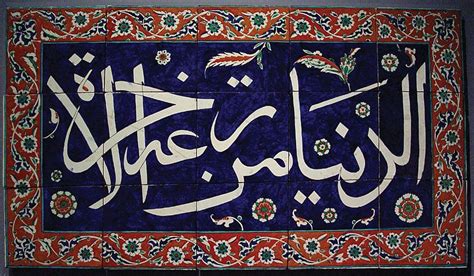 الدنيا مزرعة الاخرة